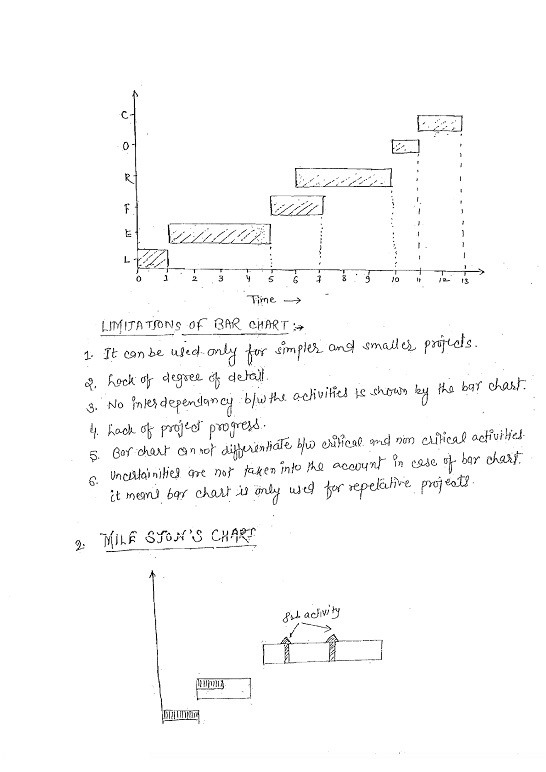 C
O
R
F
E
L
0 1 2 3 4 5 6 7 8 9 10 11 12 13
Time →
LIMITATIONS OF BAR CHART :→
1. It can be used only for simpler and smaller projects.
2. Lack of degree of detail.
3. No interdependancy b/w the activities is shown by the bar chart.
4. Lack of project progress.
5. Bar chart can not differentiate b/w critical and non critical activities
6. Uncertainities are not taken into the account in case of bar chart.
it means bar chart is only used for repetative projects.
2. MILE STON'S CHART
activity